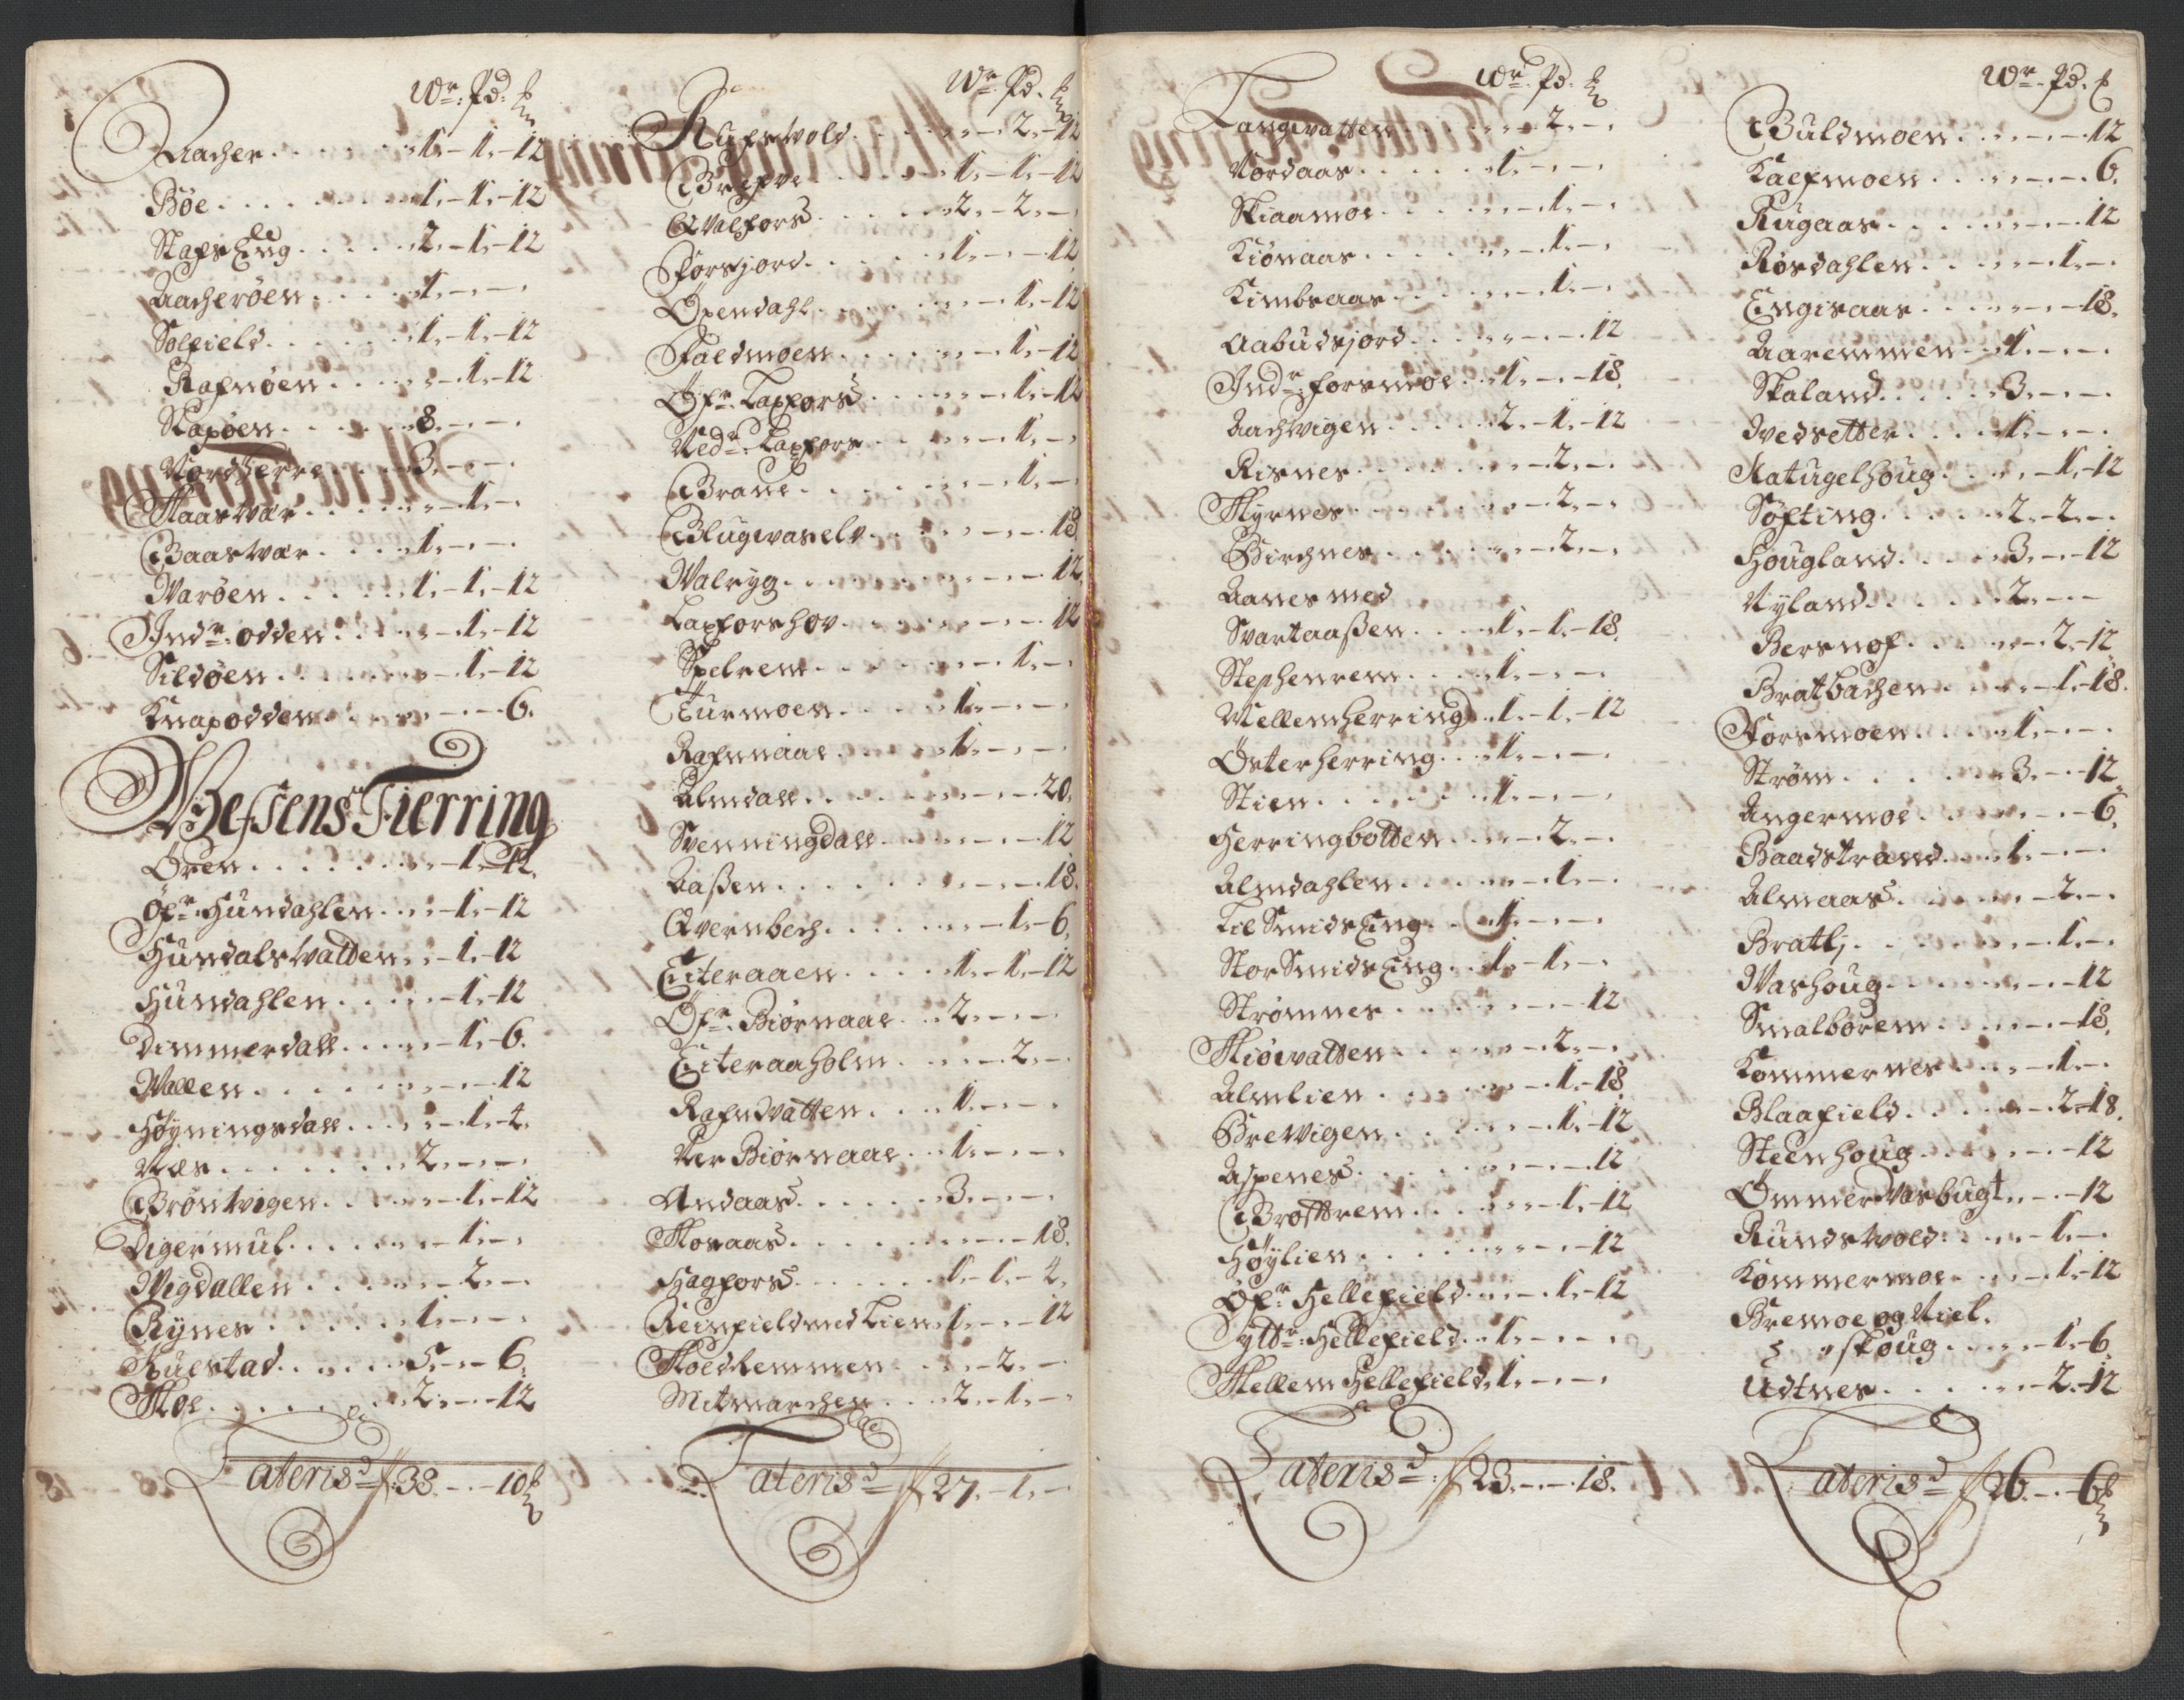 Wr: Pd: ℔
Aacher . . . 1. – 1. – 12
Böe . . . 1. – 1. – 12
StafsEng . . . 2. – 1. – 12
Aacheröen . . . 1. – – –
Solfield . . . 1. – 1. – 12
Rafnöen . . . – 1. – 12
Stapöen . . . 8. – – –
Nordherre . . . 3. – – –
Flaasvær . . . – 1. –
Baasvær . . . 1. – – –
Waröen . . . 1. – 1. – 12
Indr: odden . . . – 1. – 12
Sildöen . . . – 1. – 12
Knapodden . . . – – 6.
Wefsens Fierring
Ören . . . – 1. – 12.
Öfr: Hundahlen . . . – 1. – 12
Hundalsvatten . . . – 1. – 12
Hundahlen . . . – 1. – 12
Dimmerdall . . . – 1. – 6.
Wallen . . . – – 12
Höyningsdall . . . – 1. – 4.
Næs . . . 2. – – –
Bröntvigen . . . – 1. – 12
Digermul . . . – 1. –
Wigdallen . . . – 2. –
Rynes . . . 1. – – –
Kulstad . . . 5. – – 6.
Moe . . . 2. – – 12
Lateris d= ſ: 38. – – 10 ℔
Wr: Pd. ℔
Rufsvold . . . – 2. – 12
Brefve . . . 1. – 1. – 12
Qvalfors . . . 2. – 2. –
Forsjord . . . 1. – – 12
Öxendahl . . . – 1. – 12
Foldmoen . . . – 1. – 12
Öfr. Laxfors . . . – 1. – 12
Nedr. Laxfors . . . – 1. –
Brane . . . – 1. –
Blugvaselv . . . – – 18
Walryg . . . – – 12
Laxforshov . . . – – 12
Spelrem . . . – 1. –
Turmoen . . . 1. – – –
Rafnnaae . . . 1. – – –
Almdall . . . – – 20.
Svenningdall . . . – – 12
Aaßen . . . – – 18.
Qvernbech . . . – 1. – 6.
Eiteraaen . . . 1. – 1. – 12
Öfr. Biörnaae . . . 2. – – –
Eiteraaholm . . . – 2. –
Rafnvatten . . . 1. – – –
Ner Biörnaae . . . 1. – – –
Andaas . . . 3. – – –
Mosaas . . . – – 18.
Hagfors . . . 1. – 1. – 4.
Reinfield med Lien . 1. – – 12
Moedlemmen . . . – 2. –
Mitmarchen . . . 2. – 1. –
Lateris d= ſ 27. – 1. –
Wr. Pd. ℔
Langvatten . . . – 2. –
Nordaas . . . 1. – – –
Skiaamoe . . . – 1. –
Kiönaas . . . – 1. –
Kimbsaas . . . – 1. –
Aabudsjord . . . – – 12
Indr: forsmoe . . . 1. – – 18.
Aachvigen . . . 2. – 1. – 12
Risnes . . . – 2. –
Myrnes . . . – 2. –
Birchnes . . . – 2. –
Aanes med
Svartaaßen . . . 1. – 1. – 18.
Stephenrem . . . 1. – – –
Mellemherring . 1. – 1. – 12
Österherring . . . 1. – – –
Stien . . . 1. – – –
Herringbotten . . . – 2. –
Almdahlen . . . – 1. –
Lil SmidsEng . . . 1. – – –
Stor SmidsEng . . . 1. – 1. –
Strömnes . . . – – 12
Miövatten . . . – 2. –
Almlien . . . – 1. – 18.
Brevigen . . . – 1. – 12
Aspenes . . . – – 12
Brottrem . . . – 1. – 12
Höylien . . . – – 12
Öfr: Hellefield . . . – 1. – 12
Yttr: Hellefield . . . 1. – – –
Mellem Hellefield . 1. – – –
Lateris d= ſ 23. – – 18.
Wr. Pd. ℔
Buldmoen . . . – – 12
Kalfmoen . . . – – 6.
Rugaas . . . – – 12
Rösdahlen . . . – 1. –
Engisaas . . . – – 18.
Aaremmen . . 1. – – –
Skaland . . . 3. – – –
Ivedsetter . . . 1. – – –
Natugelhoug . . . – 1. – 12
Söfting . . . 2. – 2. –
Hougland . . . 3. – – 12
Nyland . . . 2. – – –
Bersnof . . . – 2. – 12.
Bratbachen . . . – 1. – 18.
Forsmoen . . . 1. – – –
Ström . . . 3. – – 12
Angermoe . . . – – 6.
Baadstrand . . . 1. – – –
Almaas . . . – 2. –
Bratlj . . . – 1. –
Washoug . . . – – 12
Smalborem . . . – – 18.
Kommernes . . . – 1. –
Blaafield . . . – 2. – 18.
Steenhoug . . . – – 12
Ömmervasbugt . . – – 12
Rundsvold . . . – 1. –
Kommermoe . . . – 1. – 12
Bremoe og Kiel.
skoug . . . – 1. – 6.
Udtnes . . . – 2. – 12
Lateris d= ſ 26. – – 6 ℔